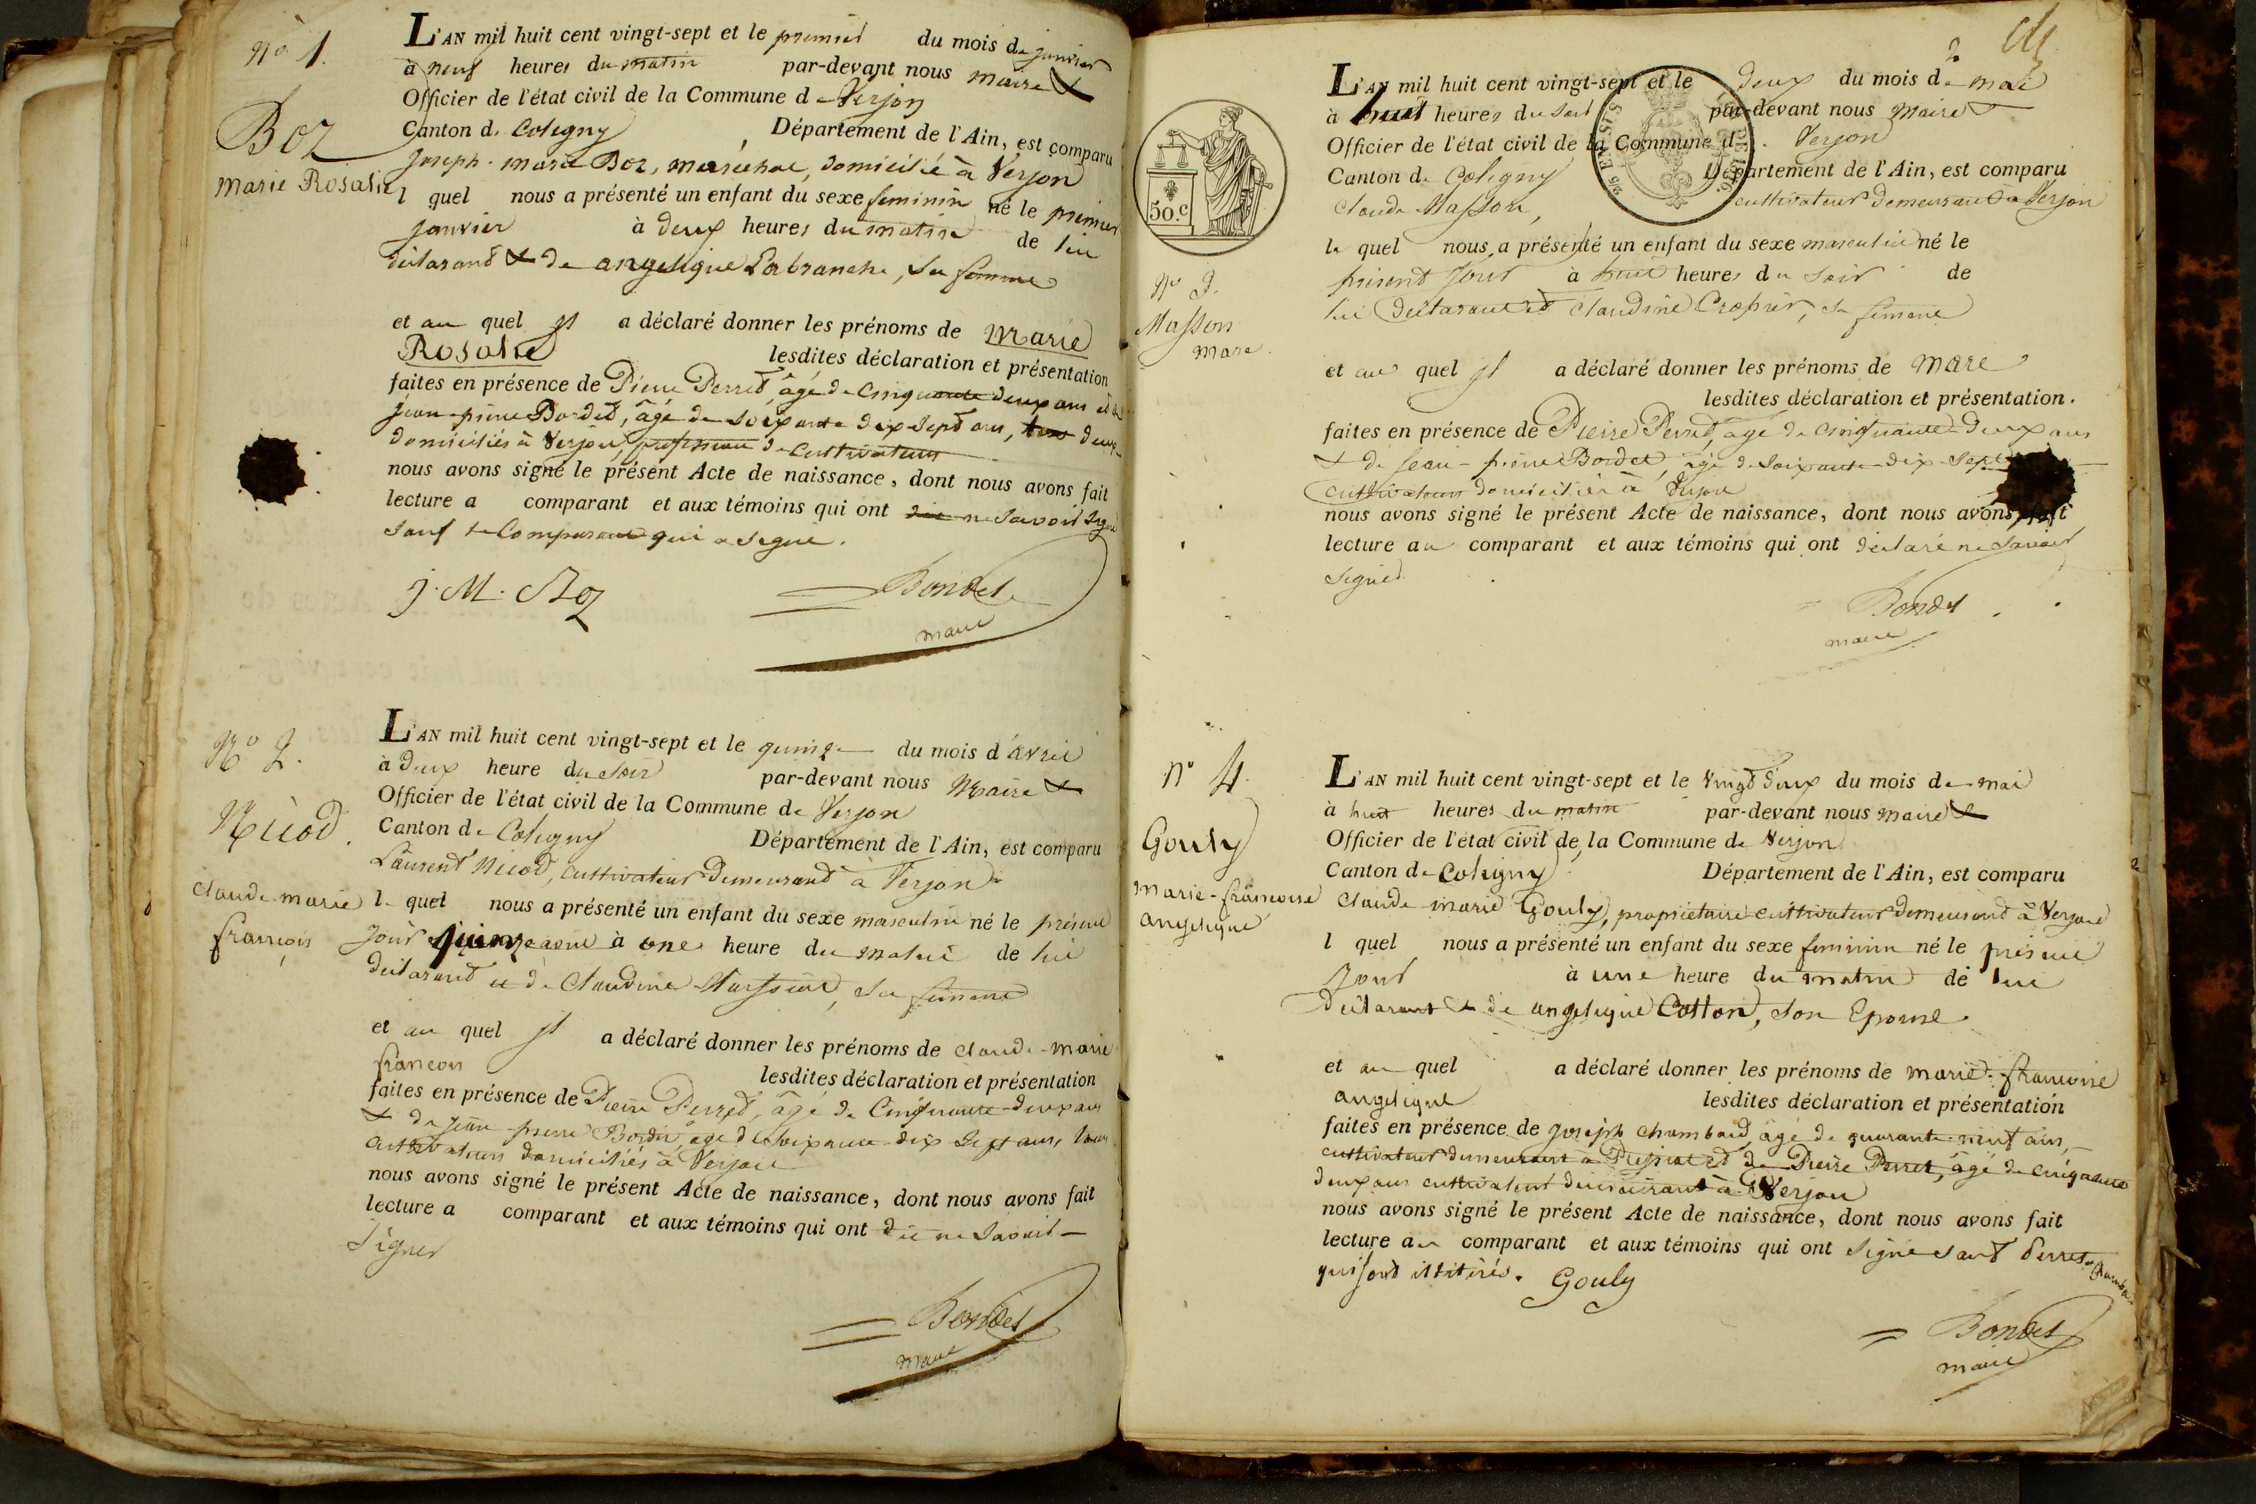 N° 1.
Boz
Marie Rosalie
L'AN mil huit cent vingt-sept et le premier du mois de janvier
à neuf heures du matin par-devant nous maire &
Officier de l'état civil de la Commune de Verjon
Canton de Coligny Département de l'Ain, est comparu
Joseph-marie Boz, maréchal, domicilié à Verjon
l quel nous a présenté un enfant du sexe feminin né le premier
janvier à deux heures du matin de lui
déclarant & de angelique Labranche, sa femme
et au quel il a déclaré donner les prénoms de Marie
Rosalie lesdites déclaration et présentation
faites en présence de Pierre Perret, âgé de cinquante deux ans et de
jean-pierre Bordet, âgé de soixante dix sept ans, deux
domiciliés à Verjon, profession de cultivateurs
nous avons signé le présent Acte de naissance, dont nous avons fait
lecture a comparant et aux témoins qui ont dit ne savoir signer
sauf le Comparant qui a signé.
j. M. Boz
Bondet
maire
N° 2.
Nicod.
Claude-marie
françois
L'AN mil huit cent vingt-sept et le quinze du mois d'avril
à deux heure du soir par-devant nous Maire &
Officier de l'état civil de la Commune de Verjon
Canton de Coligny Département de l'Ain, est comparu
Laurent Nicod, cultivateur demeurant à Verjon
le quel nous a présenté un enfant du sexe masculin né le présent
jour à une heure du matin de lui
déclarant et de Claudine sa femme
et au quel il a déclaré donner les prénoms de claude-marie
françois lesdites déclaration et présentation
faites en présence de Pierre Perret, âgé de Cinquante-deux ans
& de jean-pierre Bordet, âgé de soixante-dix sept ans, tous
cultivateurs domiciliés à Verjon
nous avons signé le présent Acte de naissance, dont nous avons fait
lecture a comparant et aux témoins qui ont dit ne savoir
signer
Bondet
maire
2
50.c
N° 3.
Masson
Marc
L'AN mil huit cent vingt-sept et le deux du mois de mai
à huit heures du soir par-devant nous Maire &
Officier de l'état civil de la Commune d Verjon
Canton de Coligny Département de l'Ain, est comparu
Claude Masson, cultivateur demeurant à Verjon
le quel nous a présenté un enfant du sexe masculin né le
présent jour à huit heures du soir de
lui déclarant et Claudine sa femme
et au quel il a déclaré donner les prénoms de Marc
lesdites déclaration et présentation.
faites en présence de Pierre Perret, âgé de cinquante-deux ans
& de jean-pierre Bordet, âgé de soixante-dix-sept
cultivateurs domiciliés à Verjon
nous avons signé le présent Acte de naissance, dont nous avons fait
lecture au comparant et aux témoins qui ont déclaré ne savoir
signer.
Bondet
maire
N° 4.
Gouly
marie-francoise
angelique
L'AN mil huit cent vingt-sept et le vingt deux du mois de mai
à huit heures du matin par-devant nous maire &
Officier de l'état civil de la Commune de Verjon
Canton de Coligny Département de l'Ain, est comparu
Claude marie Gouly, propriétaire cultivateur demeurant à Verjon
l quel nous a présenté un enfant du sexe feminin né le présent
jour à une heure du matin de lui
déclarant & de angelique Cotton, son Epouse
et au quel a déclaré donner les prénoms de marie-francoise
angelique lesdites déclaration et présentation
faites en présence de joseph chambard, âgé de quarante-neuf ans,
cultivateur demeurant à et de Pierre Perret, âgé de cinquante
deux ans cultivateur demeurant à Verjon
nous avons signé le présent Acte de naissance, dont nous avons fait
lecture au comparant et aux témoins qui ont signé sauf Perret & chambard
qui sont illitérés. Gouly
Bondet
maire